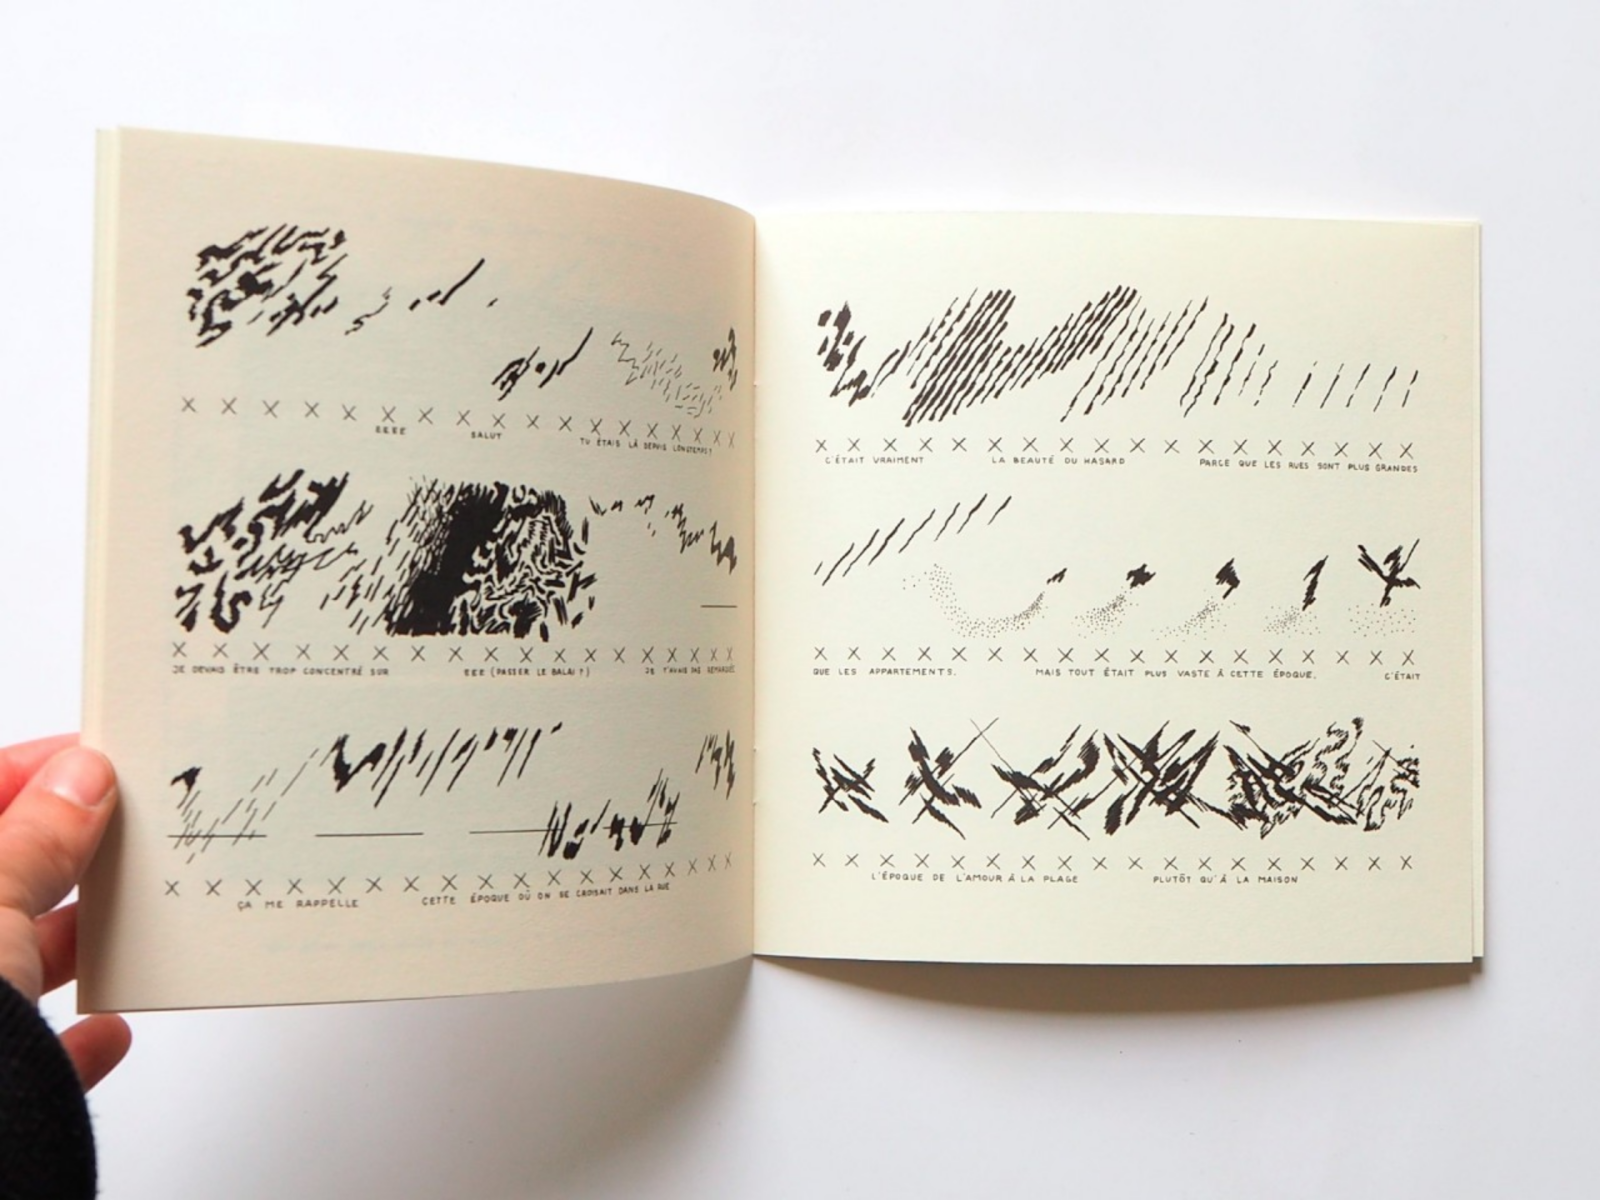 EEEE SALUT TU ÉTAIS LÀ DEPUIS LONGTEMPS?
JE DEVAIS ÊTRE TROP CONCENTRÉ SUR EEE (PASSER LE BALAI ?) JE T'AVAIS PAS REMARQUÉE
ÇA ME RAPPELLE CETTE ÉPOQUE OÙ ON SE CROISAIT DANS LA RUE
C'ÉTAIT VRAIMENT LA BEAUTÉ DU HASARD PARCE QUE LES RUES SONT PLUS GRANDES
QUE LES APPARTEMENTS. MAIS TOUT ÉTAIT PLUS VASTE À CETTE ÉPOQUE. C'ÉTAIT
L'ÉPOQUE DE L'AMOUR À LA PLAGE PLUTÔT QU'À LA MAISON